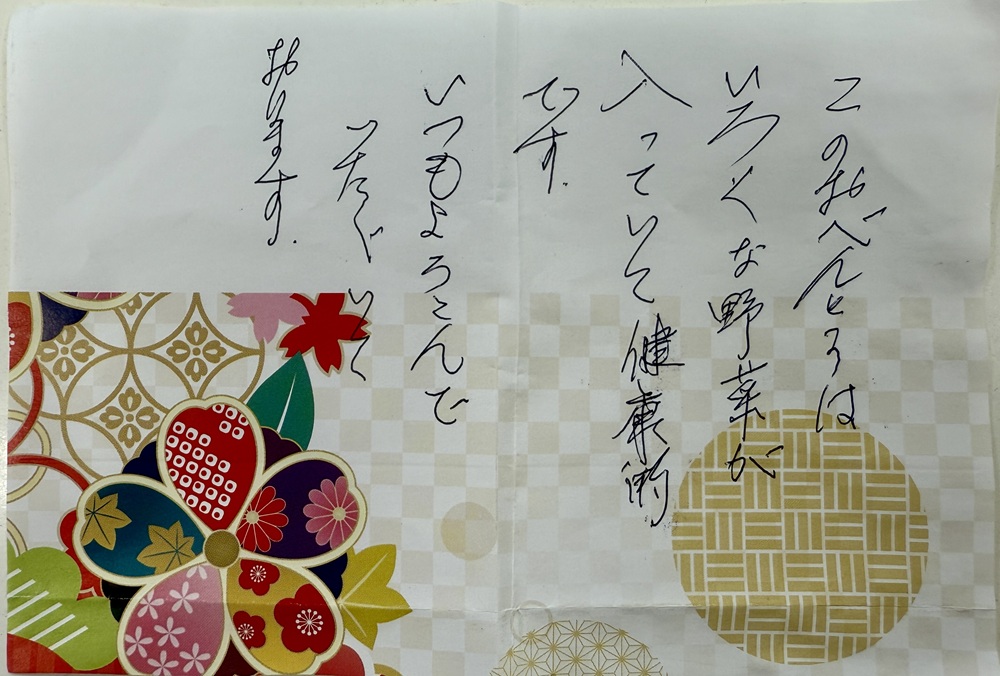 このおべんとうは
いろ〱な野菜が
入っていて健康的
です.
いつもよろこんで
いたゞいて
おります.